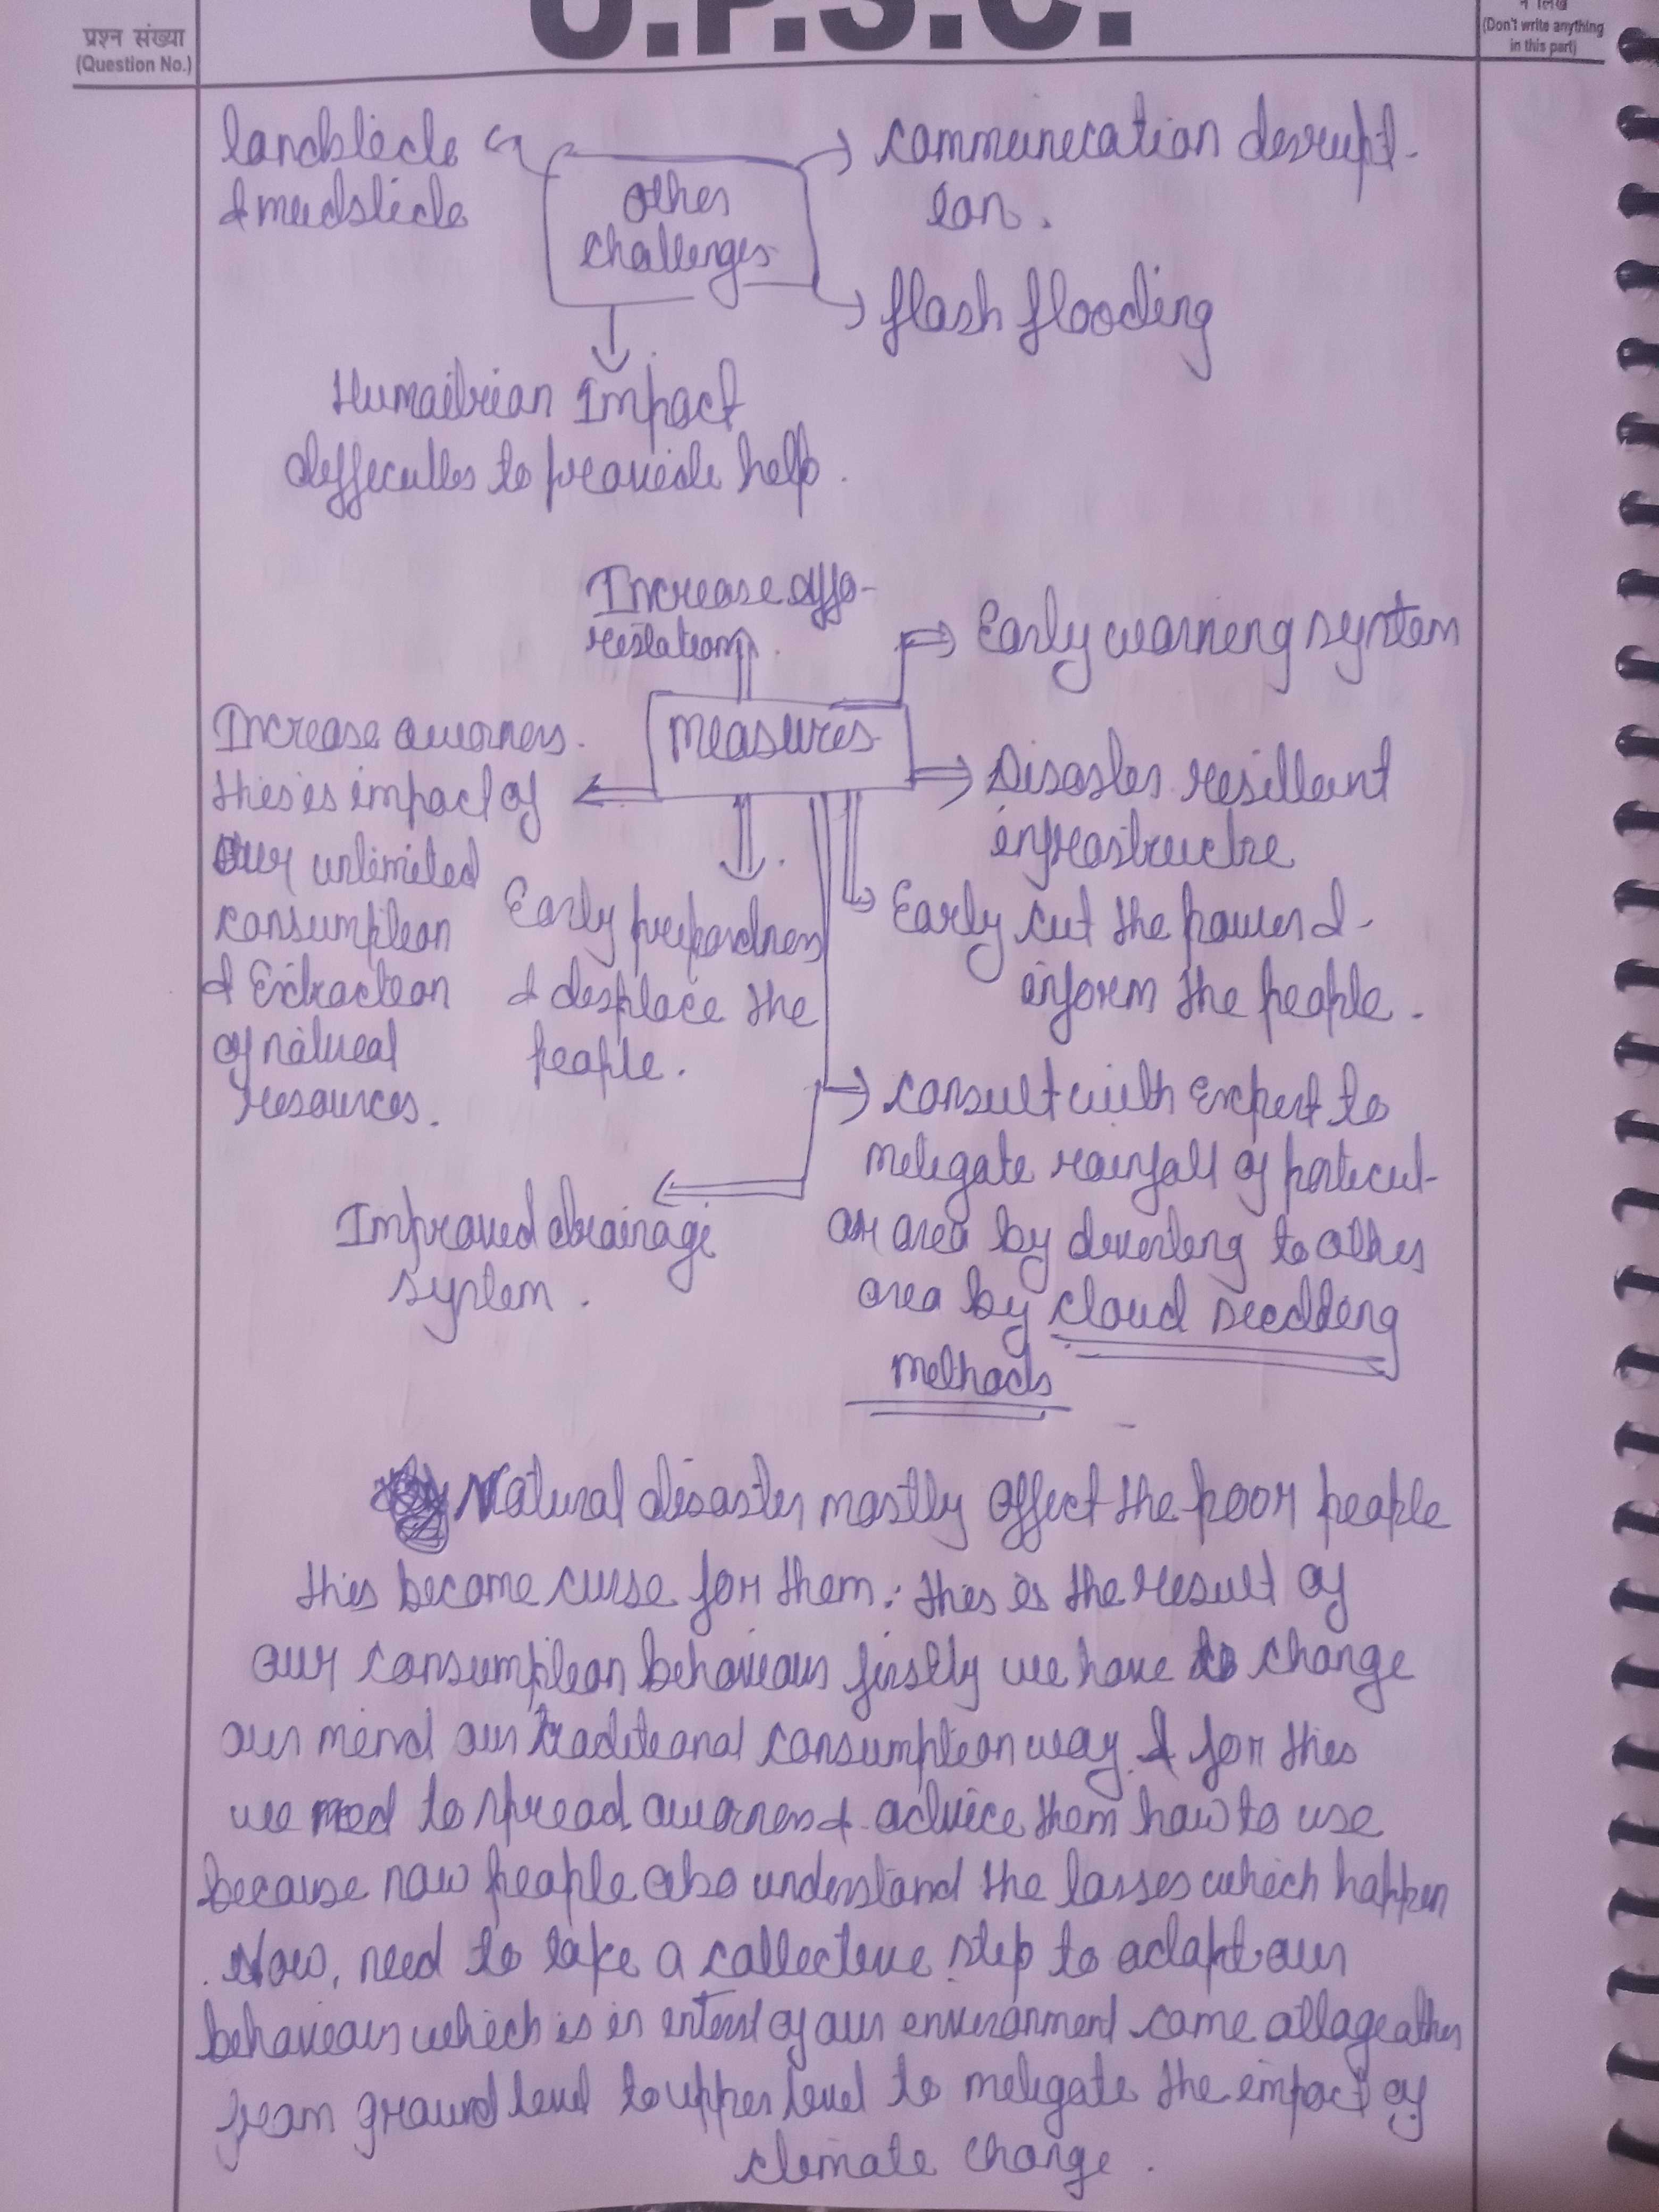 U.P.S.C.
प्रश्न संख्या
(Question No.)
न लिखें
(Don't write anything
in this part)
landslide
& mudslide
other
challenges
communication disrupt-
ion.
flash flooding
Humaitrian Impact
difficultes to provide help.
Increase affo-
restation.
Early warning system
Measures
Increase awarness.
this is impact of
our unlimited
consumption
& Extraction
of natural
resources.
Disaster resillant
infrastructre
Early prepardness
& displace the
people.
Early cut the power &
inform the people.
consult with Expert to
metigate rainfall of particul-
ar area by diverting to other
area by cloud seedding
methods
Improved drainage
system.
Natural disaster mostly affect the poor people
this become curse for them. this is the result of
our consumption behaviour firstly we have to change
our mind our traditional consumption way. & for this
we need to spread awarness & advice them how to use
because now people also understand the losses which happen
. Now, need to take a collective step to adapt our
behaviour which is in interst of our environment come altogeather
from ground level to upper level to metigate the impact of
climate change.